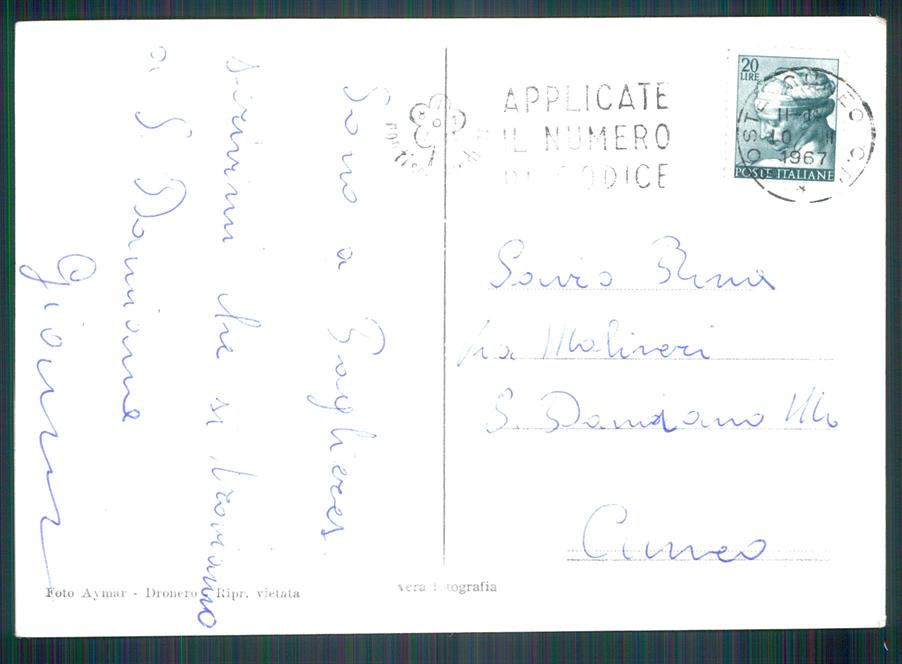 Sono a Paglieres
scrivimi che si troviamo
a S Damiano
Gianni
APPLICATE
IL NUMERO
DI CODICE
20
LIRE
1967
POSTE ITALIANE
Savio Rina
Via Molineri
S. Damiano Mo
Cuneo
Foto Aymar - Dronero Ripr. vietata
vera fotografia